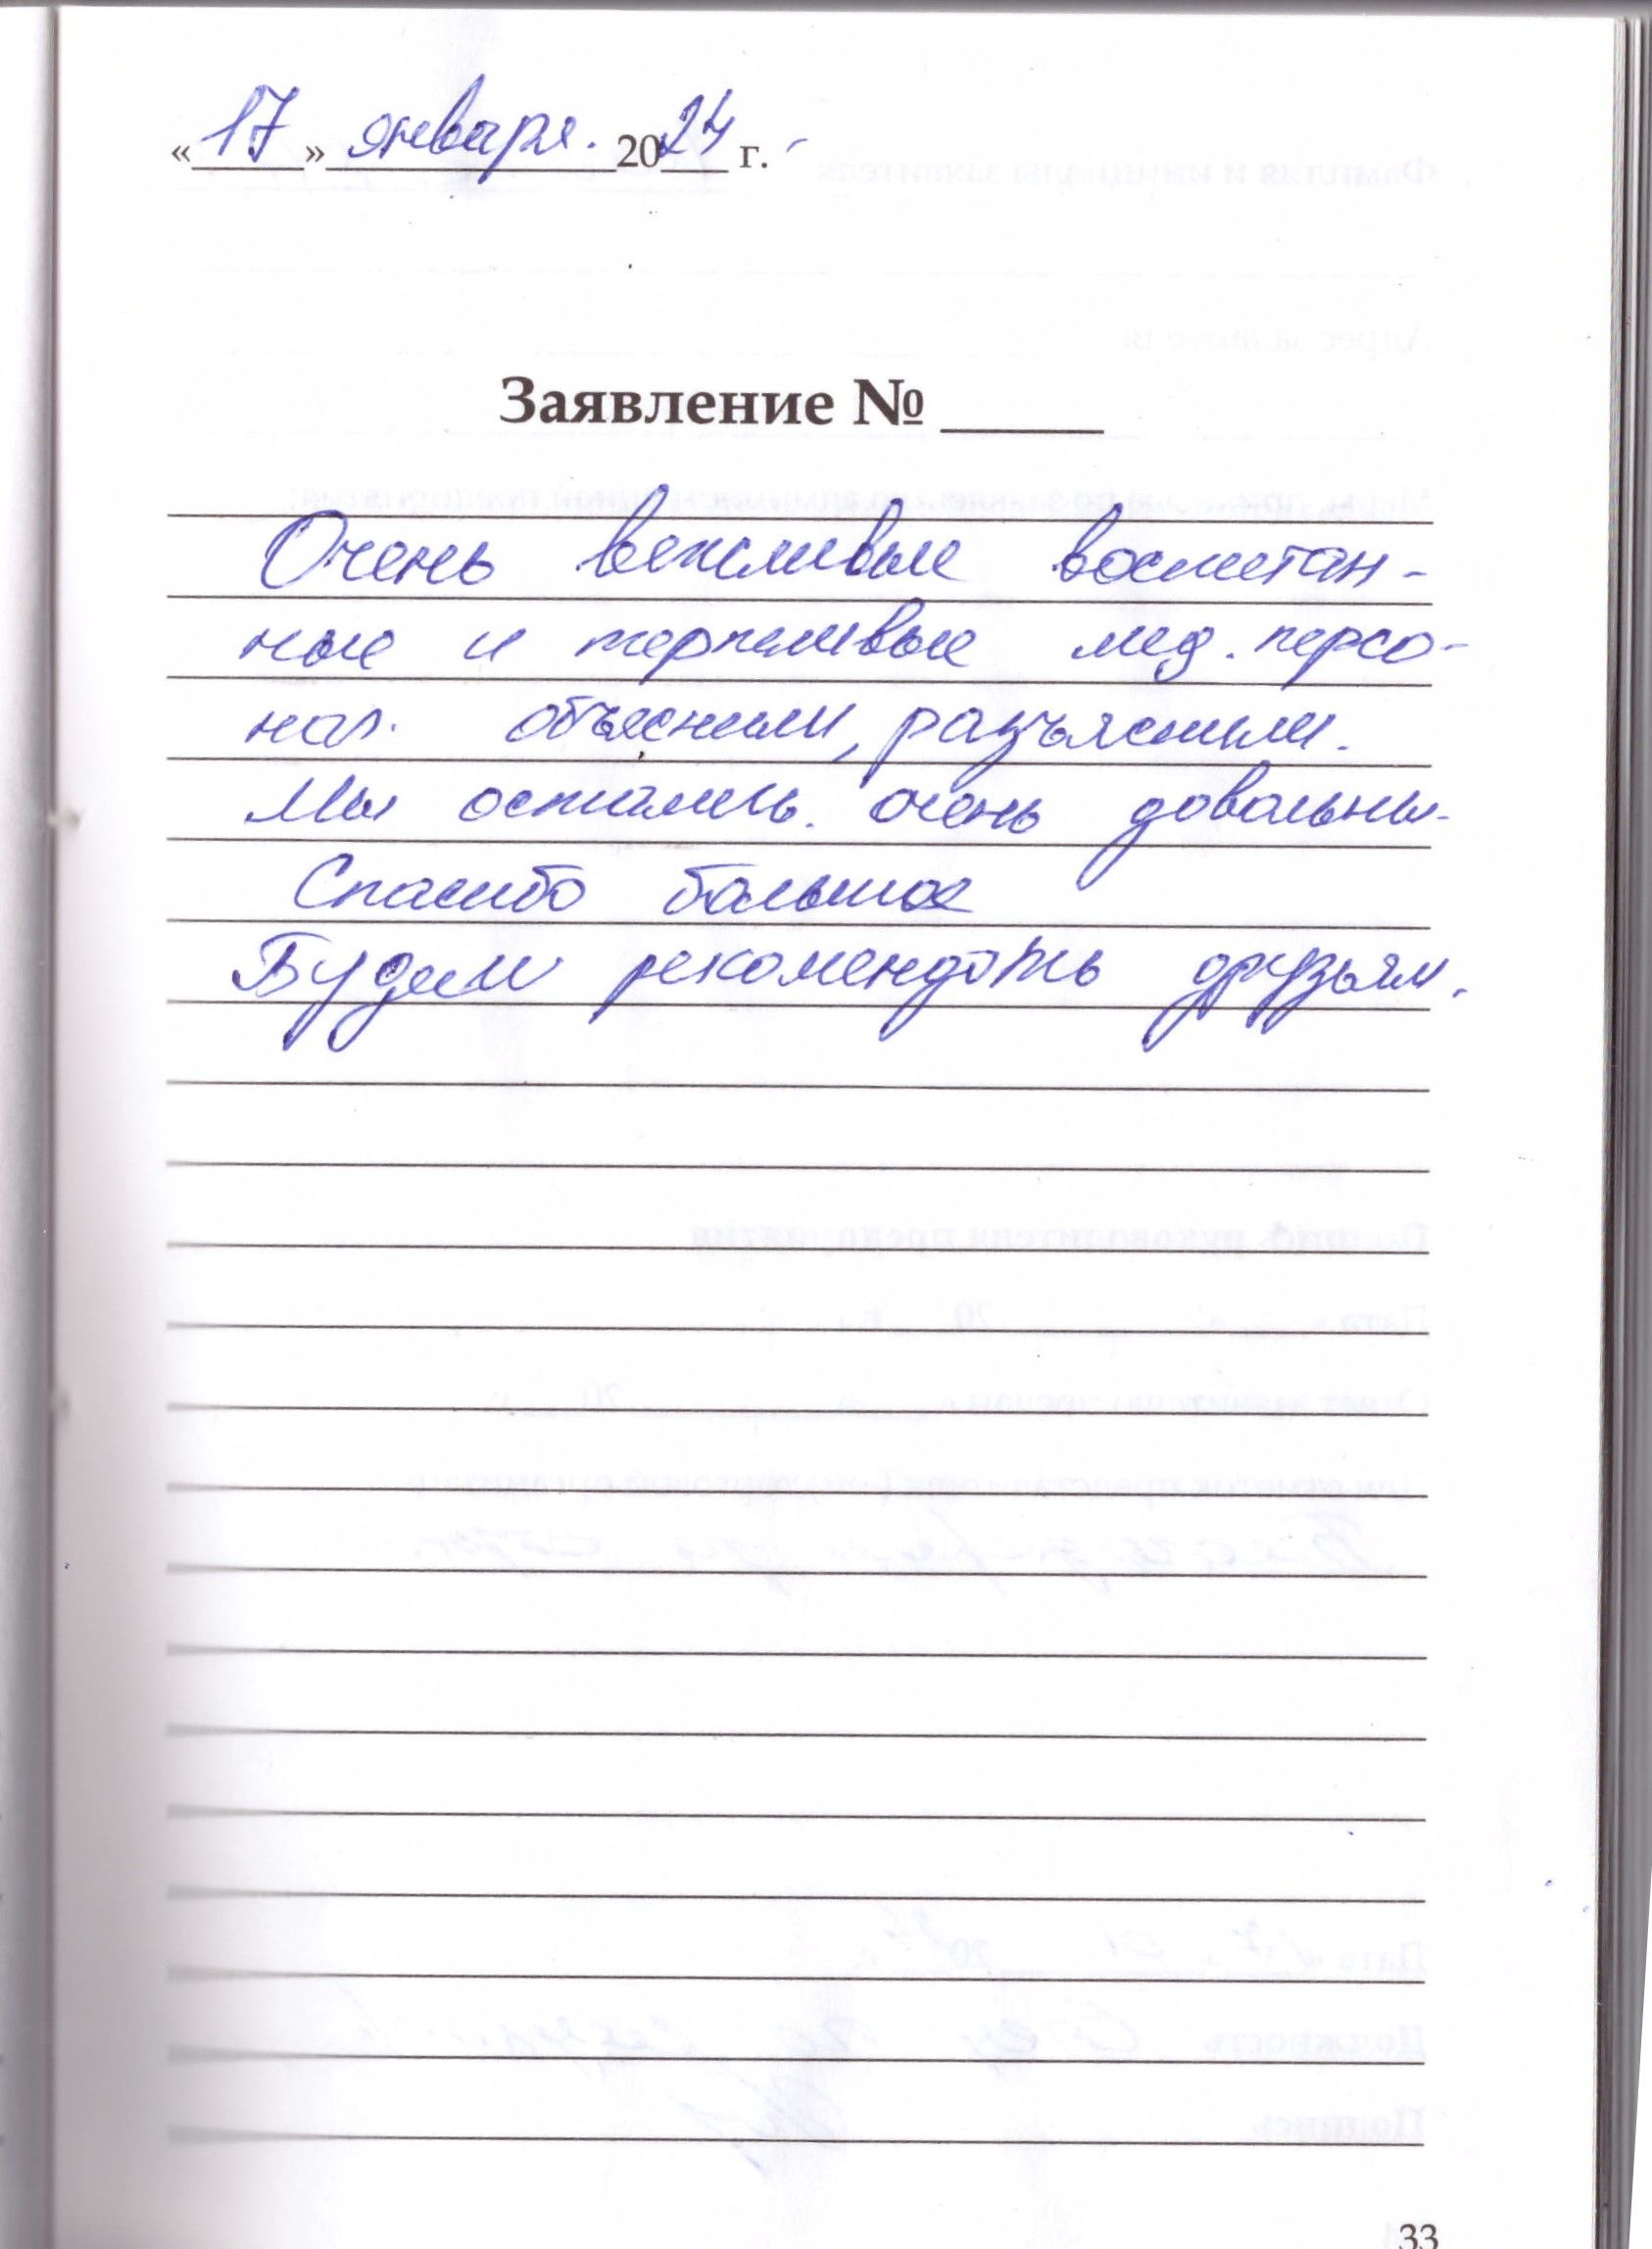 «17» января. 2024 г.
Заявление № _____
Очень вежливые воспитан-
ные и терпеливые мед. персо-
нал. объяснили, разъяснили.
Мы остались очень довольны.
Спасибо большое
Будем рекомендоть друзьям.
33